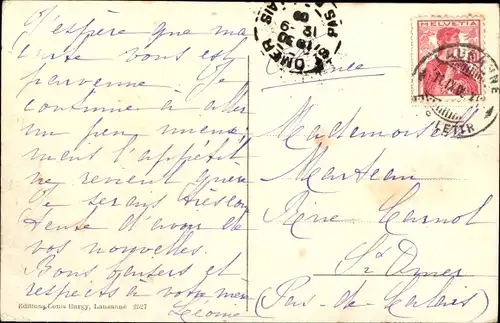 J'espère que ma
carte vous est
parvenue Je
continue à aller
un peu mieux
mais l'appétit
ne revient guère
Je serais très con
tente d'avoir de
vos nouvelles.
Bons baisers et
respects à votre mère
Léonie
Editions Louis Burgy, Lausanne 2527
France
Mademoiselle
Marteau
Rue Carnot
St Omer
(Pas-de-Calais)
OMER
HELVETIA
LAUSANNE
LETTR